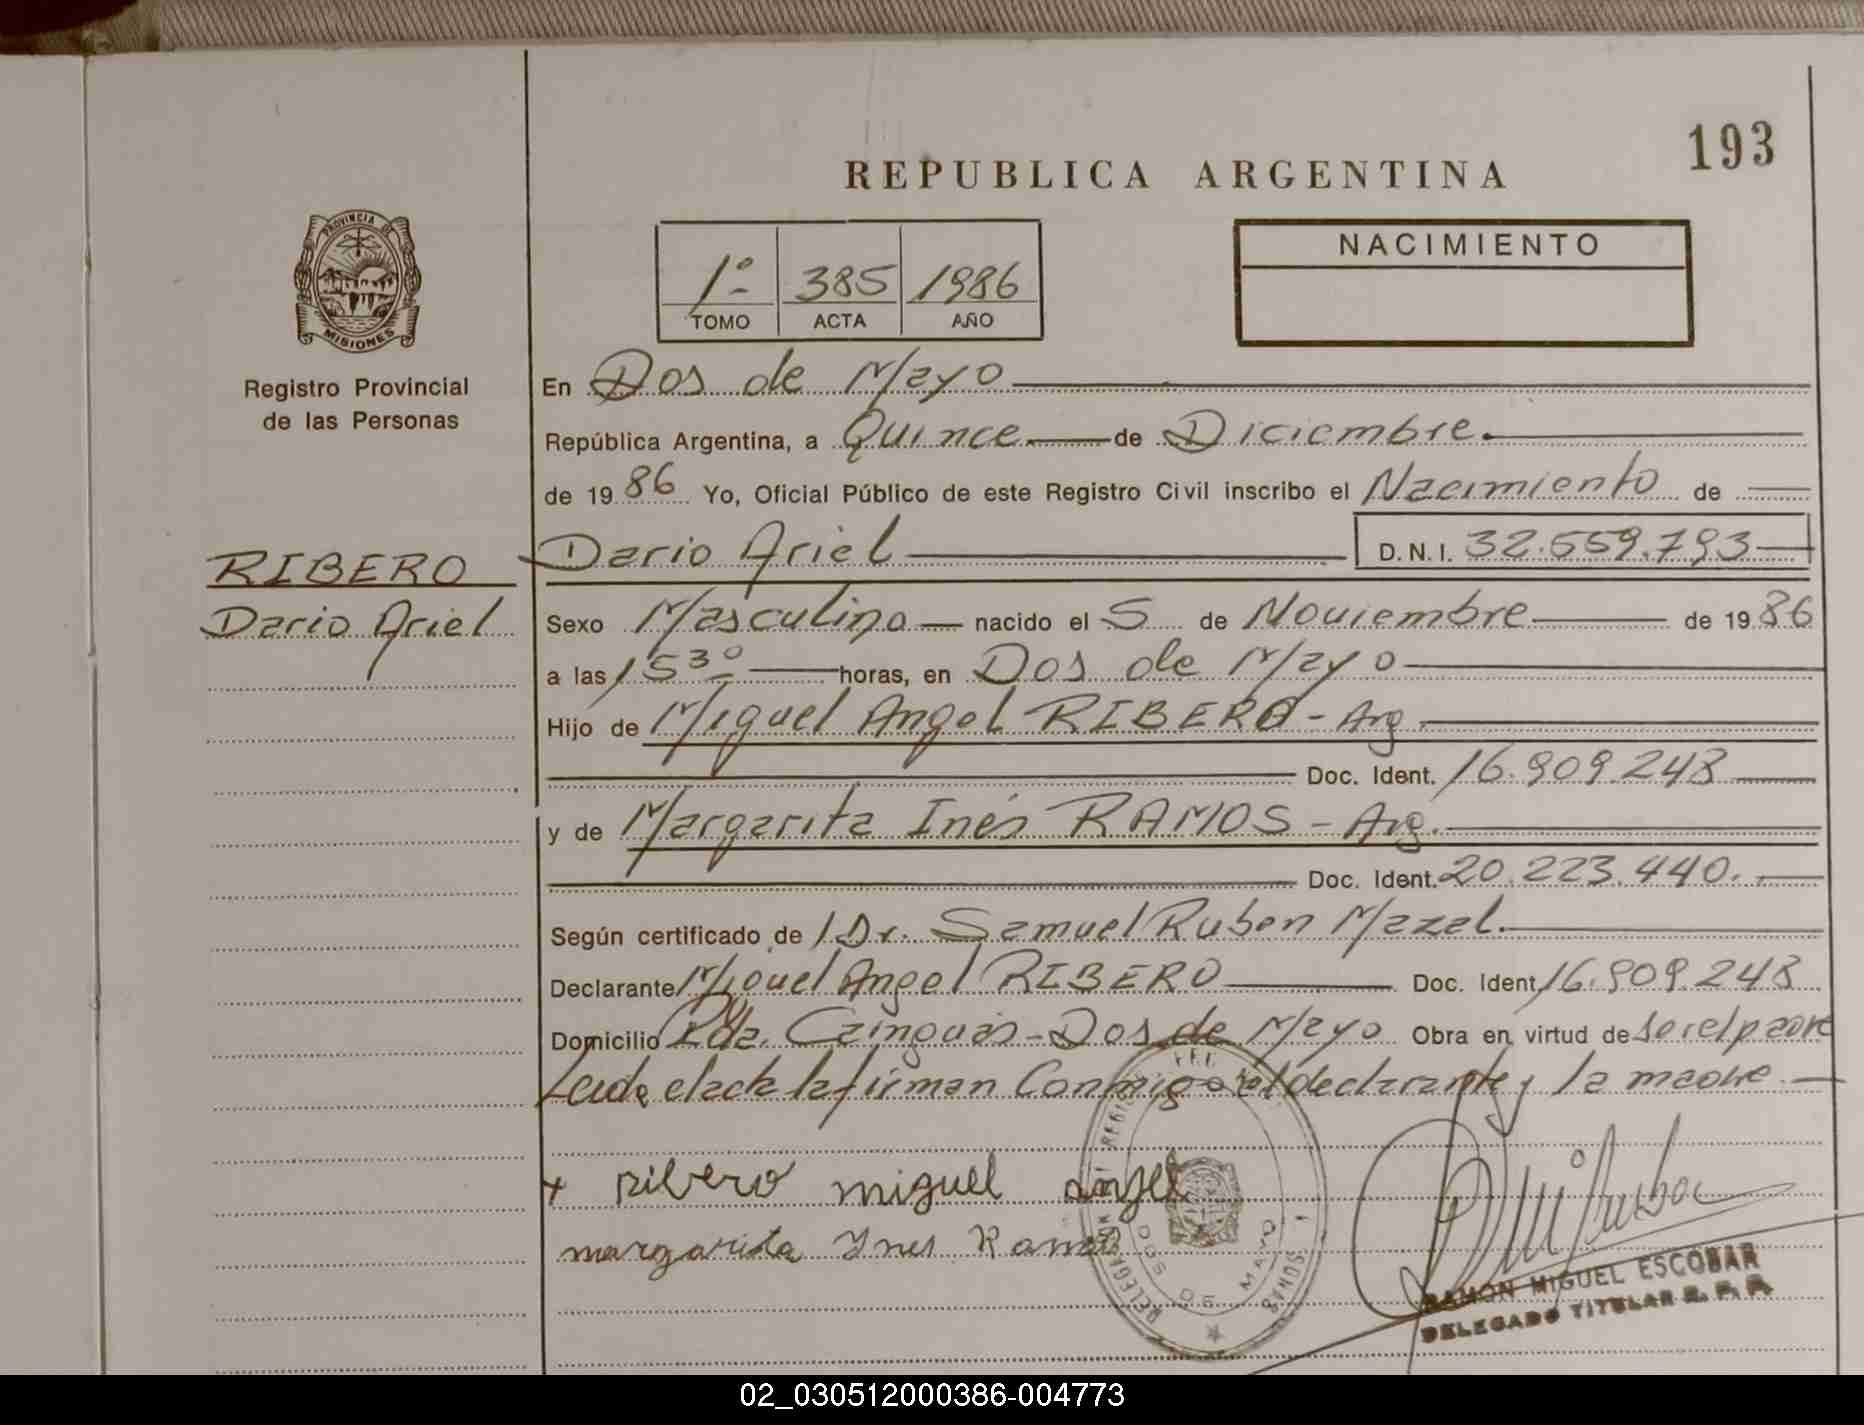 193
REPUBLICA ARGENTINA
PROVINCIA DE
MISIONES
Registro Provincial
de las Personas
1º 385 1986
TOMO ACTA AÑO
NACIMIENTO
En Dos de Mayo
República Argentina, a Quince de Diciembre.
de 1986 Yo, Oficial Público de este Registro Civil inscribo el Nacimiento de
RIBERO
Dario Ariel D.N.I. 32.559.793
Dario Ariel
Sexo Masculino nacido el 5 de Noviembre de 1986
a las 15 30 horas, en Dos de Mayo
Hijo de Miguel Angel RIBERO - Arg.
Doc. Ident. 16.909.248
y de Margarita Inés RAMOS - Arg.
Doc. Ident. 20.223.440.
Según certificado de Dr. Samuel Ruben Mazal.
Declarante Miguel Angel RIBERO Doc. Ident. 16.909.248
Domicilio Pda. Cainguás - Dos de Mayo Obra en virtud de ser el padre
Leida el acta la firman Conmigo el declarante y la madre
+ Ribero miguel angel
margarita Ynes Ramos
DOS DE MAYO
RAMON MIGUEL ESCOBAR
DELEGADO TITULAR R. P. P.
02_030512000386-004773